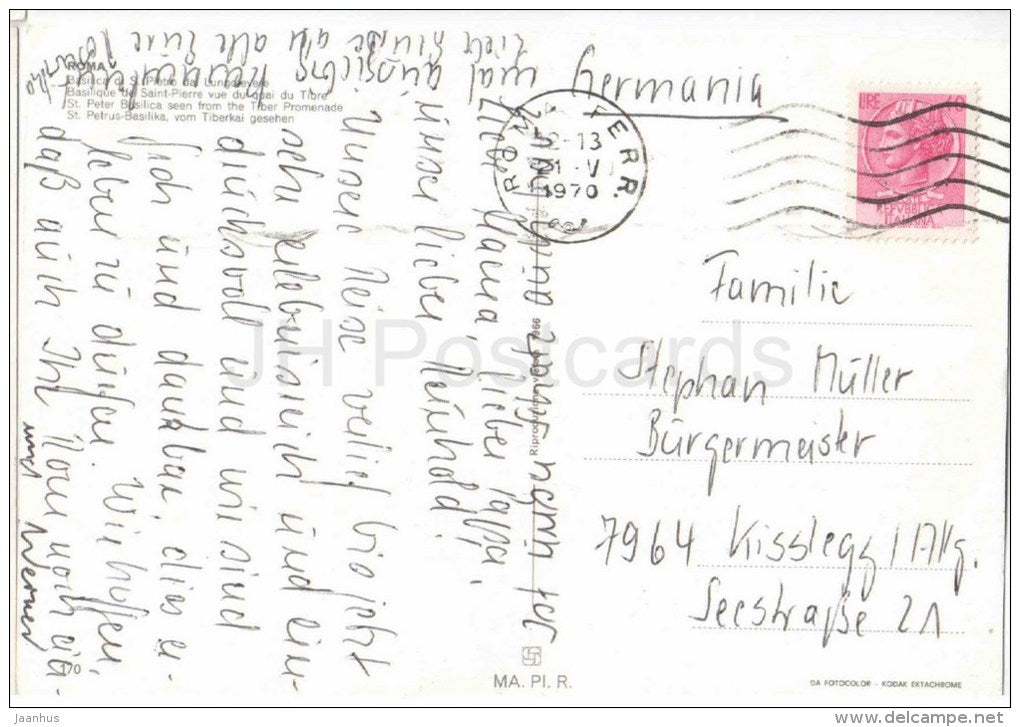 ROMA
Basilica di S. Pietro dal Lungotevere
Basilique de Saint-Pierre vue du quai du Tibre
St. Peter Basilica seen from the Tiber Promenade
St. Petrus-Basilika, vom Tiberkai gesehen
Germania
LIRE
REPVBBLICA
ITALIANA
ROMA FERR.
12-13
31 -V
1970
Familie
Stephan Müller
Bürgermeister
7964 Kisslegg / Allg.
Seestraße 21
Liebe Mama, lieber Pappa,
unser lieber Reinhold!
Unsere Reise verlief bis jetzt
sehr erlebnisreich und ein-
drucksvoll und wir sind
froh und dankbar, dies er-
leben zu dürfen. Wir hoffen,
daß auch Ihr Rom noch ein-
mal
Liebe Grüße an alle Eure
und Werner
170
MA. PI. R.
DA FOTOCOLOR - KODAK EKTACHROME
JH Postcards
www.jaanhus.com
www.delcampe.net